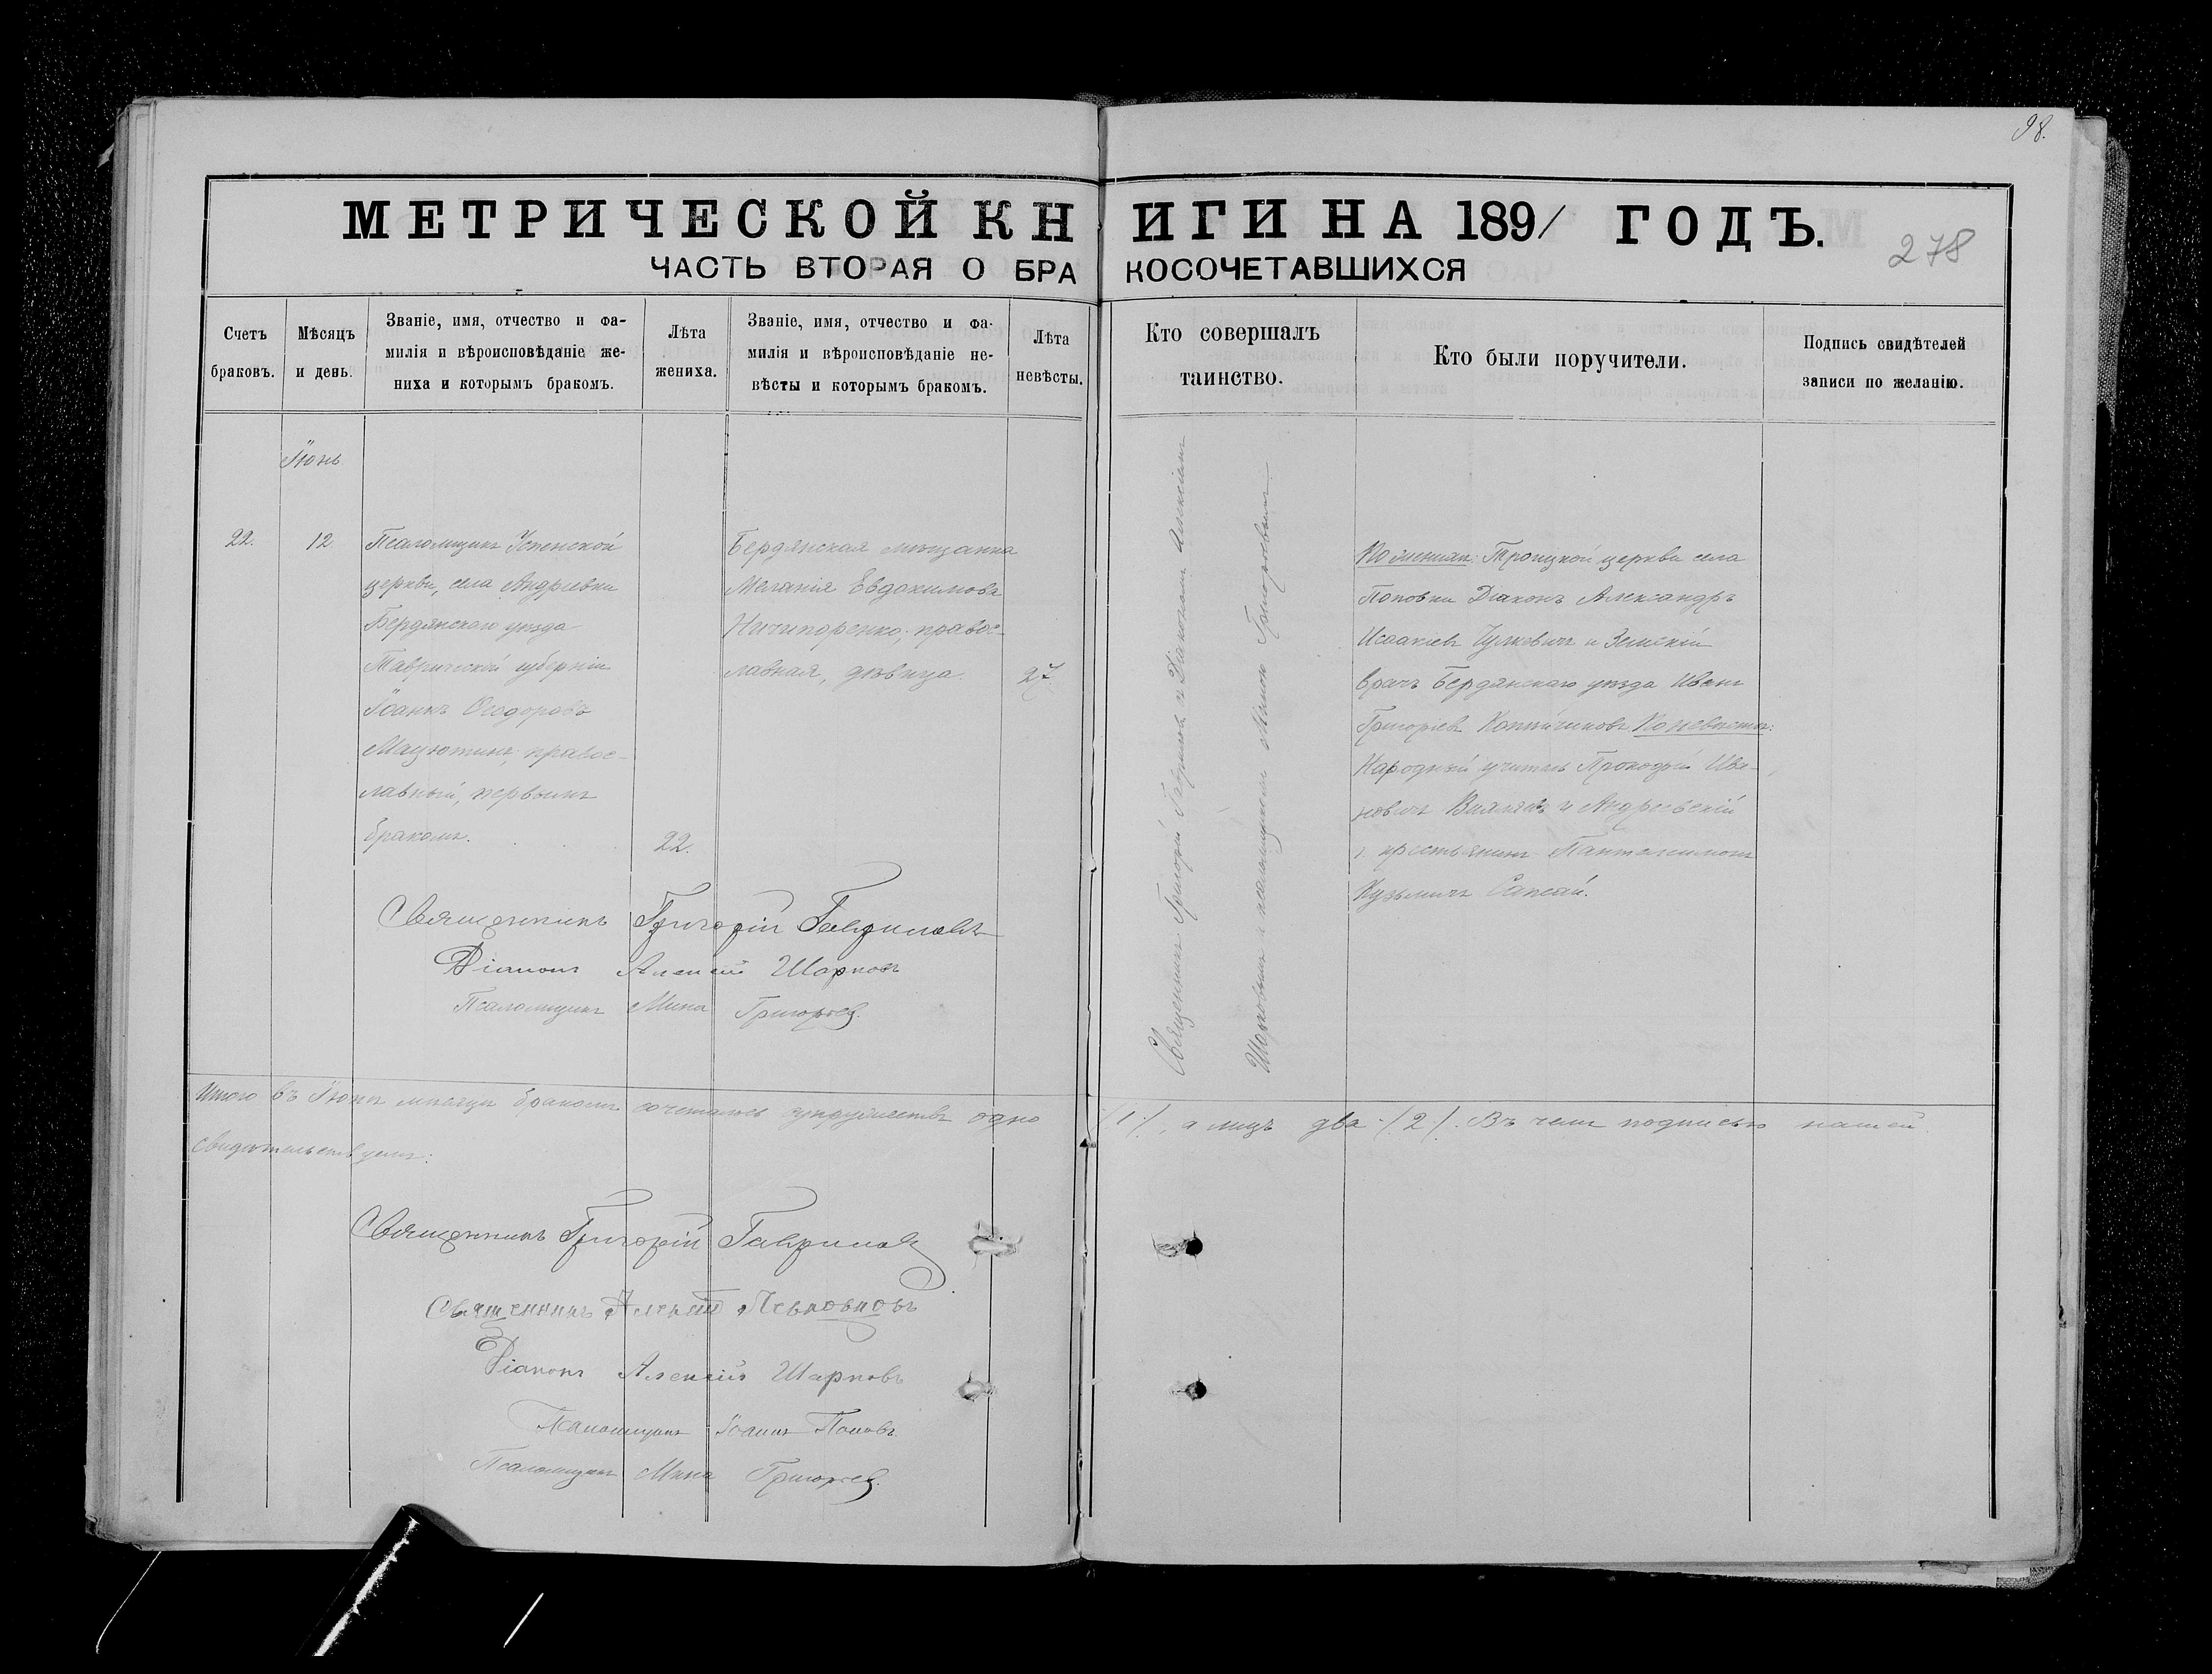 98.
МЕТРИЧЕСКОЙ КНИГИ НА 1891 ГОДЪ.
278
ЧАСТЬ ВТОРАЯ О БРАКОСОЧЕТАВШИХСЯ
Счетъ браковъ.
Мѣсяцъ и день.
Званіе, имя, отчество и фамилія и вѣроисповѣданіе жениха и которымъ бракомъ.
Лѣта жениха.
Званіе, имя, отчество и фамилія и вѣроисповѣданіе невѣсты и которымъ бракомъ.
Лѣта невѣсты.
Кто совершалъ таинство.
Кто были поручители.
Подпись свидѣтелей записи по желанію.
Іюнь
22.
12
Псаломщикъ Успенской
церкви, села Андреевки
Бердянскаго уѣзда
Таврической губерніи
Іоаннъ Ѳеодоровъ
Мацютинъ, правос-
лавный, первымъ
бракомъ.
22.
Бердянская мѣщанка
Меланія Евдокимова
Ничипоренко, правос-
лавная, дѣвица.
27
Священникъ Григорій Гавриловъ и Діаконъ Алексіемъ
Шарковымъ и псаломщикомъ Миною Григоровымъ
По женихѣ: Троицкой церкви села
Поповки Діаконъ Александръ
Исаакіевъ Чулкевичъ и Земскій
врачъ Бердянскаго уѣзда Иванъ
Григоріевъ По невѣстѣ:
Народный учитель Прокофій Ива-
новичъ и Андреевскій
крестьянинъ Пантелеимонъ
Кузьмичъ Сапсай.
Священникъ Григорій Гавриловъ
Діаконъ Алексій Шарковъ
Псаломщикъ Мина Григорьев
Итого въ Іюнѣ мѣсяцѣ бракомъ сочеталось супружествъ одно (1), а лицъ два (2). Въ чемъ подписью нашей
свидѣтельствуемъ:
Священникъ Григорій Гаврилов
Священникъ Алексій Левковцовъ
Діаконъ Алексій Шарковъ
Псаломщикъ Іоаннъ Поповъ
Псаломщикъ Мина Григорьев.